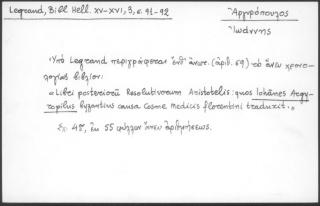 Legrand, Bibl Hell. XV-XVI, 3, σ. 91-92
Ἀργυρόπουλος
Ἰωάννης
Ὑπὸ Legrand περιγράφεται ὑπ' ἀριθ. (ἀριθ. 59) τὸ ἄνευ χρονο-
λογίας βιβλίον:
«Libri posteriorū Resolutivorum Aristotelis: quos Iohānes Argy-
ropilus byzantius causa Cosme Medicis florentini traduxit.»
Σὲ 4°, ἐκ 55 φύλλων ἄνευ ἀριθμήσεως.